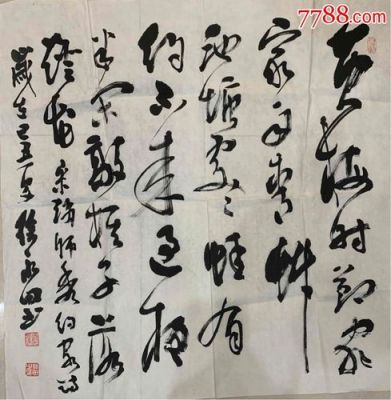 7788.com
黄梅时节家
家雨青草
池塘处处蛙有
约不来过夜
半闲敲棋子落
灯花 宋赵师秀约客诗
岁在己丑 书